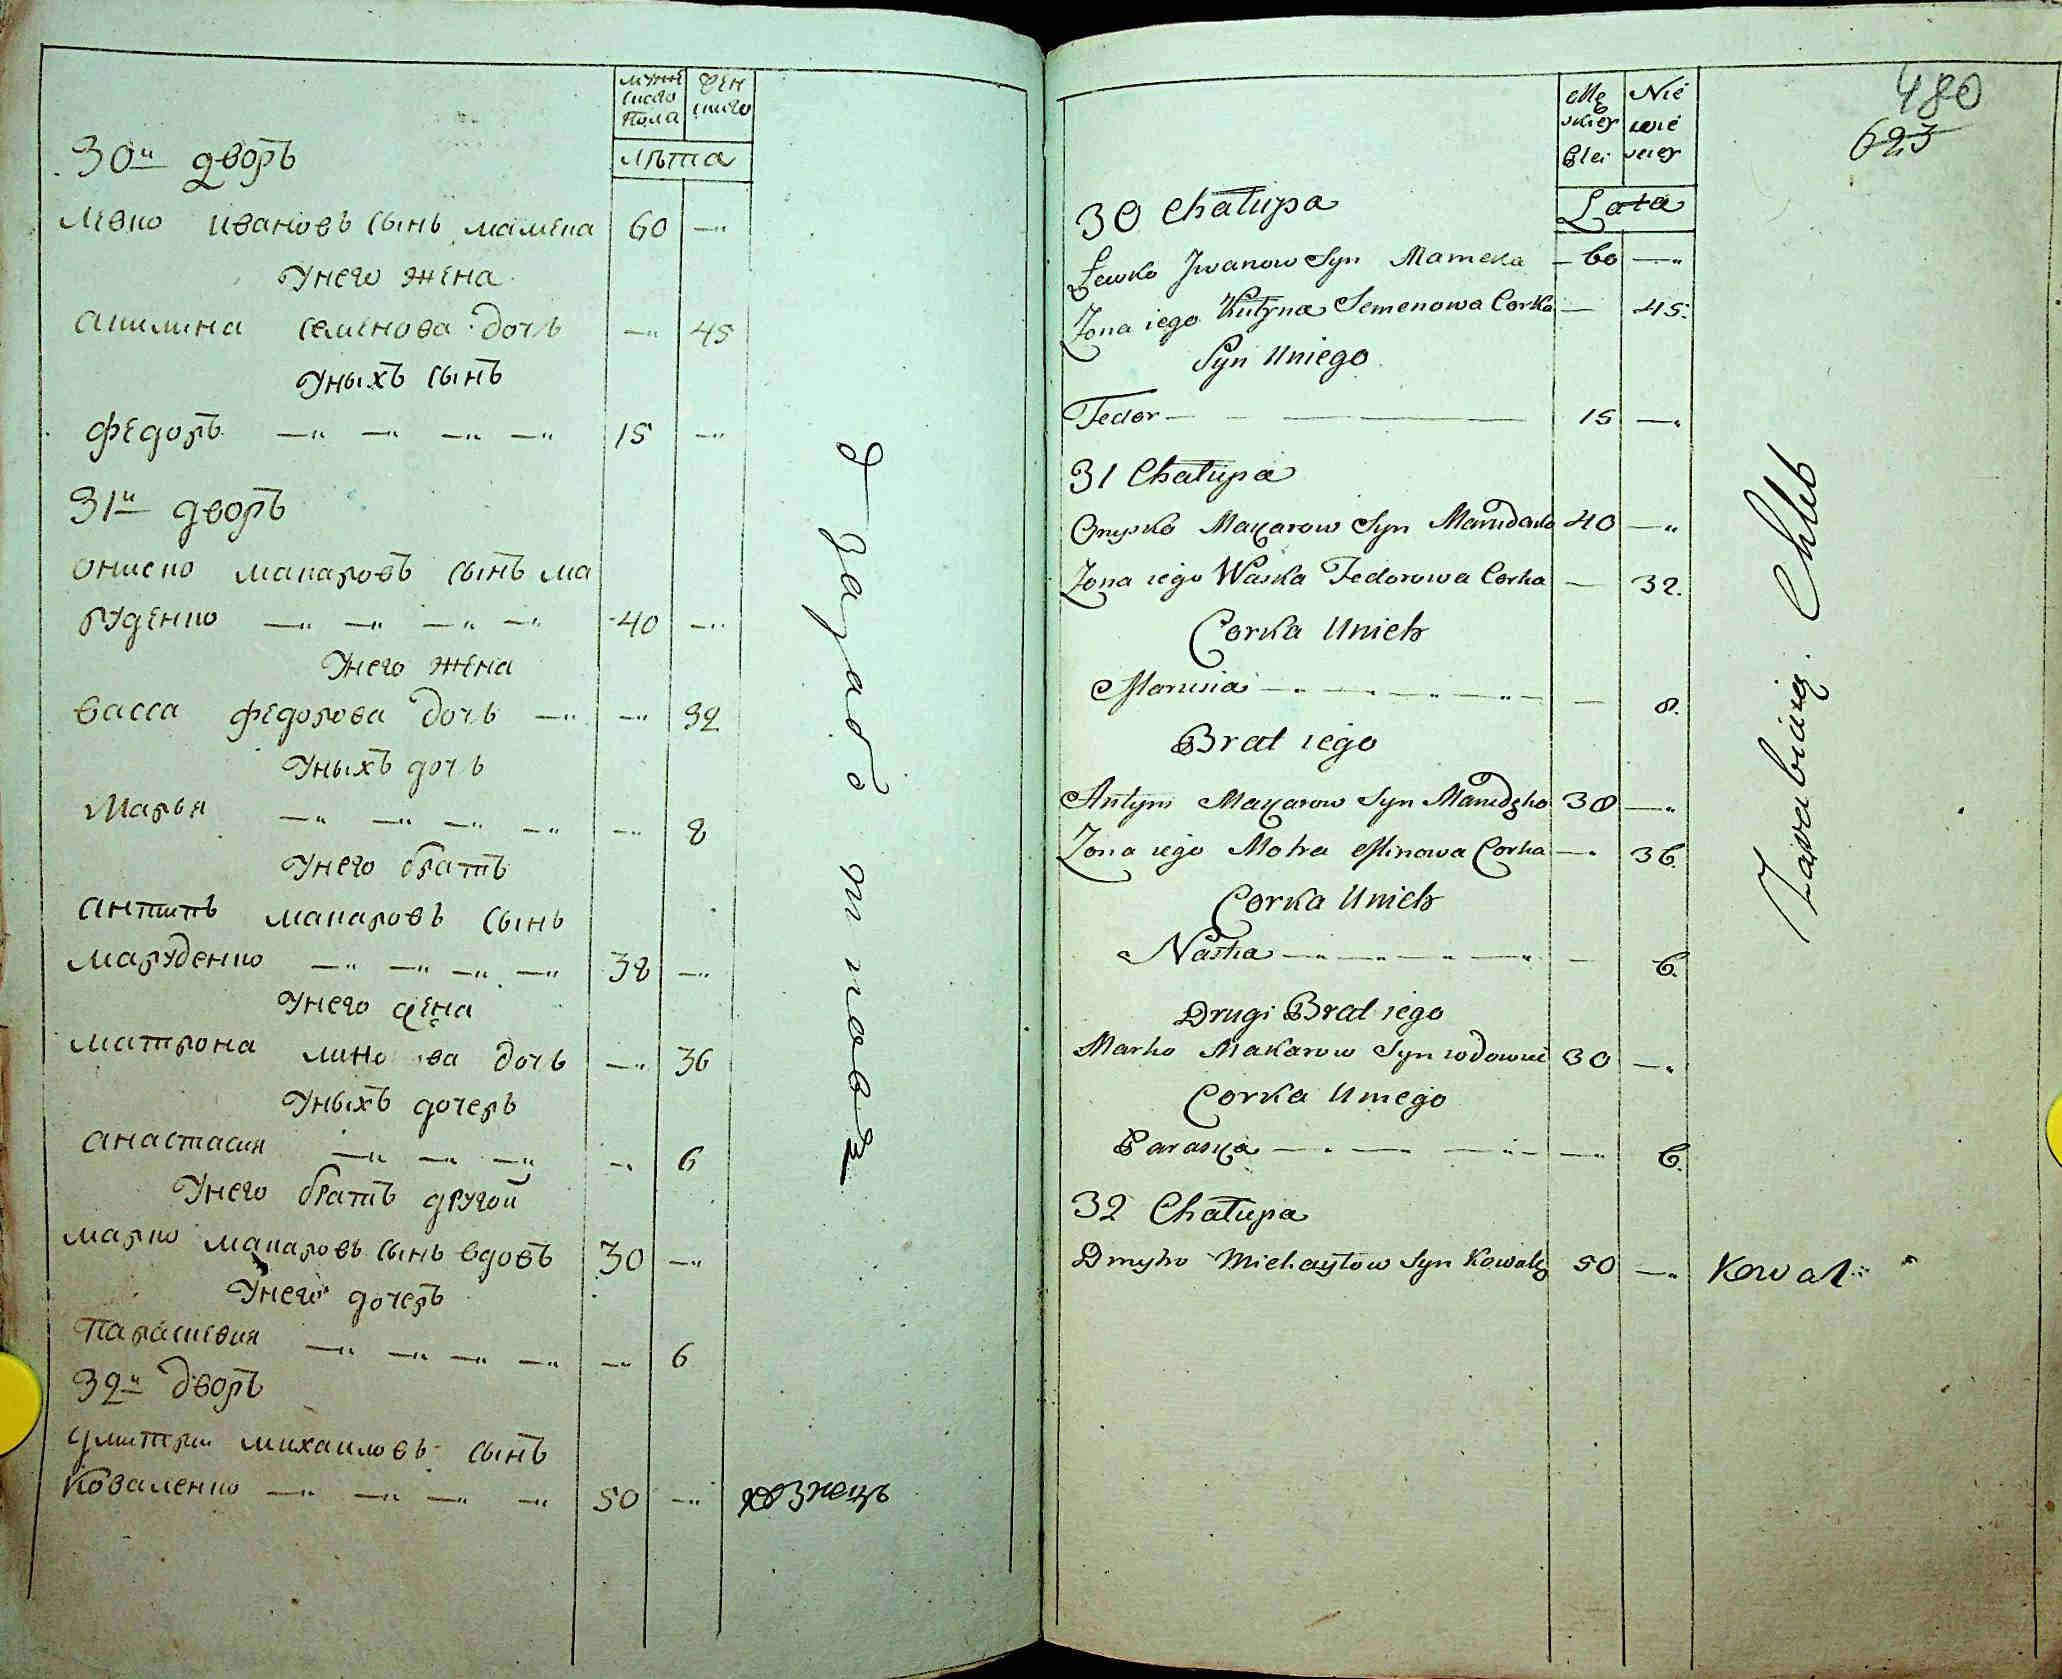 мужескаго пола
женскаго
лѣта
30й дворъ
левко ивановъ сынъ мамека 60 —„
Унего жена
акилина семенова дочь —„ 45
Уныхъ сынъ
федоръ —„ —„ —„ —„ 15 —„
31й дворъ
ониско макаровъ сынъ ма
руденко —„ —„ —„ —„ 40 —„
Унего жена
васса федорова дочь —„ —„ 32
Уныхъ дочь
Марья —„ —„ —„ —„ —„ 8
Унего братъ
антипъ макаровъ сынъ
маруденко —„ —„ —„ —„ 38 —„
Унего жена
матрона мино ва дочь —„ 36
Уныхъ дочеръ
анастасия —„ —„ —„ —„ 6
Унего братъ другой
марко макаровъ сынъ вдовъ 30 —„
Унего дочеръ
Параскевия —„ —„ —„ —„ —„ 6
32й дворъ
дмитрии михаиловъ сынъ
Коваленко —„ —„ —„ —„ 50 —„ кознецъ
480
623
Męskiey Płci
Niewiesciey
Lata
30 Chałupa
Lewko Jwanow Syn Mameka — 60 —„
Zona iego Kulyna Semenowa Corka — 45.
Syn Uniego
Fedor — — — 15 —„
31 Chałupa
Onysko Makarow Syn Marudenko 40 —„
Zona iego Waska Fedorowa Corka — 32.
Corka Unich
Marusia —„ —„ —„ —„ — 8.
Brat iego
Antyp Makarow Syn Marudenko 38 —„
Zona iego Motra Minowa Corka —„ 36.
Corka Unich
Nastia —„ —„ —„ —„ — 6.
Drugi Brat iego
Marko Makarow Syn wdowiec 30 —„
Corka Uniego
Paraska —„ — —„ —„ 6.
32 Chałupa
Dmytro Michayłow Syn Kowal 50 —„ Kowal
Zarabiaią Chleb